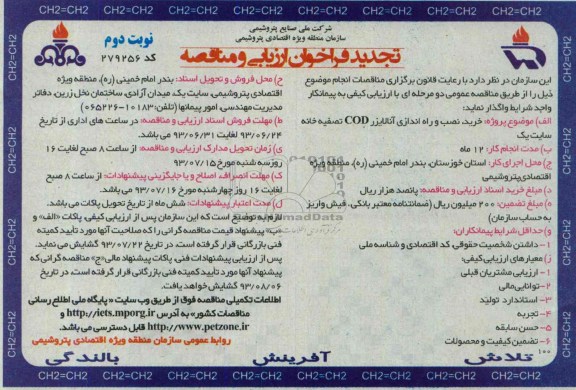 شرکت ملی صنایع پتروشیمی
سازمان منطقه ویژه اقتصادی پتروشیمی
نوبت دوم
کد ۲۷۹۲۵۶
تجدید فراخوان ارزیابی و مناقصه
این سازمان در نظر دارد با رعایت قانون برگزاری مناقصات انجام موضوع
ذیل را از طریق مناقصه عمومی دو مرحله ای با ارزیابی کیفی به پیمانکار
واجد شرایط واگذار نماید:
الف) موضوع پروژه: خرید، نصب و راه اندازی آنالایزر COD تصفیه خانه
سایت یک
ب) مدت انجام کار: ۱۲ ماه
ج) محل اجرای کار: استان خوزستان، بندر امام خمینی (ره)، منطقه ویژه
اقتصادی پتروشیمی
د) مبلغ خرید اسناد ارزیابی و مناقصه: پانصد هزار ریال
ه) مبلغ تضمین: ۲۰۰ میلیون ریال (ضمانتنامه معتبر بانکی، فیش واریز
به حساب سازمان)
و) حداقل شرایط پیمانکاران:
۱- داشتن شخصیت حقوقی، کد اقتصادی و شناسه ملی
ز) معیارهای ارزیابی کیفی:
۱- ارزیابی مشتریان قبلی
۲- توانایی مالی
۳- استاندارد تولید
۴- تجربه
۵- حسن سابقه
۶- تضمین کیفیت و محصولات
۱۰۰
ح) محل فروش و تحویل اسناد: بندر امام خمینی (ره)، منطقه ویژه
اقتصادی پتروشیمی، سایت یک، میدان آزادی، ساختمان نخل زرین، دفاتر
مدیریت مهندسی، امور پیمانها (تلفن: ۱۰۱۸۳-۰۶۵۲۲۶)
ط) مهلت فروش اسناد ارزیابی و مناقصه: در ساعت های اداری از تاریخ
۹۳/۰۶/۲۴ لغایت ۹۳/۰۶/۳۱ می باشد.
ی) زمان تحویل مدارک ارزیابی و مناقصه: از ساعت ۸ صبح لغایت ۱۶
روز سه شنبه مورخ ۹۳/۰۷/۱۵
ک) مهلت انصراف، اصلاح و یا جایگزینی پیشنهادات: از ساعت ۸ صبح
لغایت ۱۶ روز چهارشنبه مورخ ۹۳/۰۷/۱۶ می باشد.
ل) مدت اعتبار پیشنهادات: شش ماه از تاریخ تحویل پاکات می باشد.
لازم به توضیح است که این سازمان پس از ارزیابی کیفی، پاکات «الف» و
«ب» پیشنهاد قیمت مناقصه گرانی را که صلاحیت آنها مورد تأیید کمیته
فنی بازرگانی قرار گرفته است، در تاریخ ۹۳/۰۷/۲۲ گشایش می نماید.
پس از ارزیابی پیشنهادات فنی، پاکات پیشنهاد مالی «ج» مناقصه گرانی که
پیشنهاد آنها مورد تأیید کمیته فنی بازرگانی قرار گرفته است، در تاریخ
۹۳/۰۸/۰۶ گشایش خواهد یافت.
اطلاعات تکمیلی مناقصه فوق از طریق وب سایت «پایگاه ملی اطلاع رسانی
مناقصات کشور» به آدرس http://iets.mporg.ir و
http://www.petzone.ir قابل دسترسی می باشد.
روابط عمومی سازمان منطقه ویژه اقتصادی پتروشیمی
تلاش آفرینش بالندگی
CH2=CH2 CH2=CH2 CH2=CH2 CH2=CH2 CH2=CH2 CH2=CH2 CH2=CH2